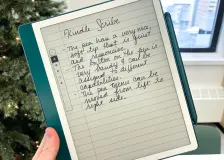 Kindle Scribe
The pen has a very nice,
soft tip that is quiet
and responsive.
The button on the pen is
very handy & can be
assigned to different
capabilities.
The pen can be
moved from left to
right side.